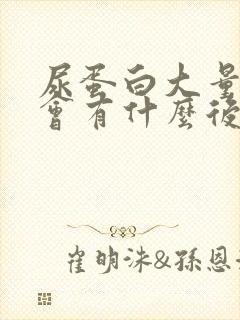 尿蛋白大量
會有什麼後
崔明洙&孫恩